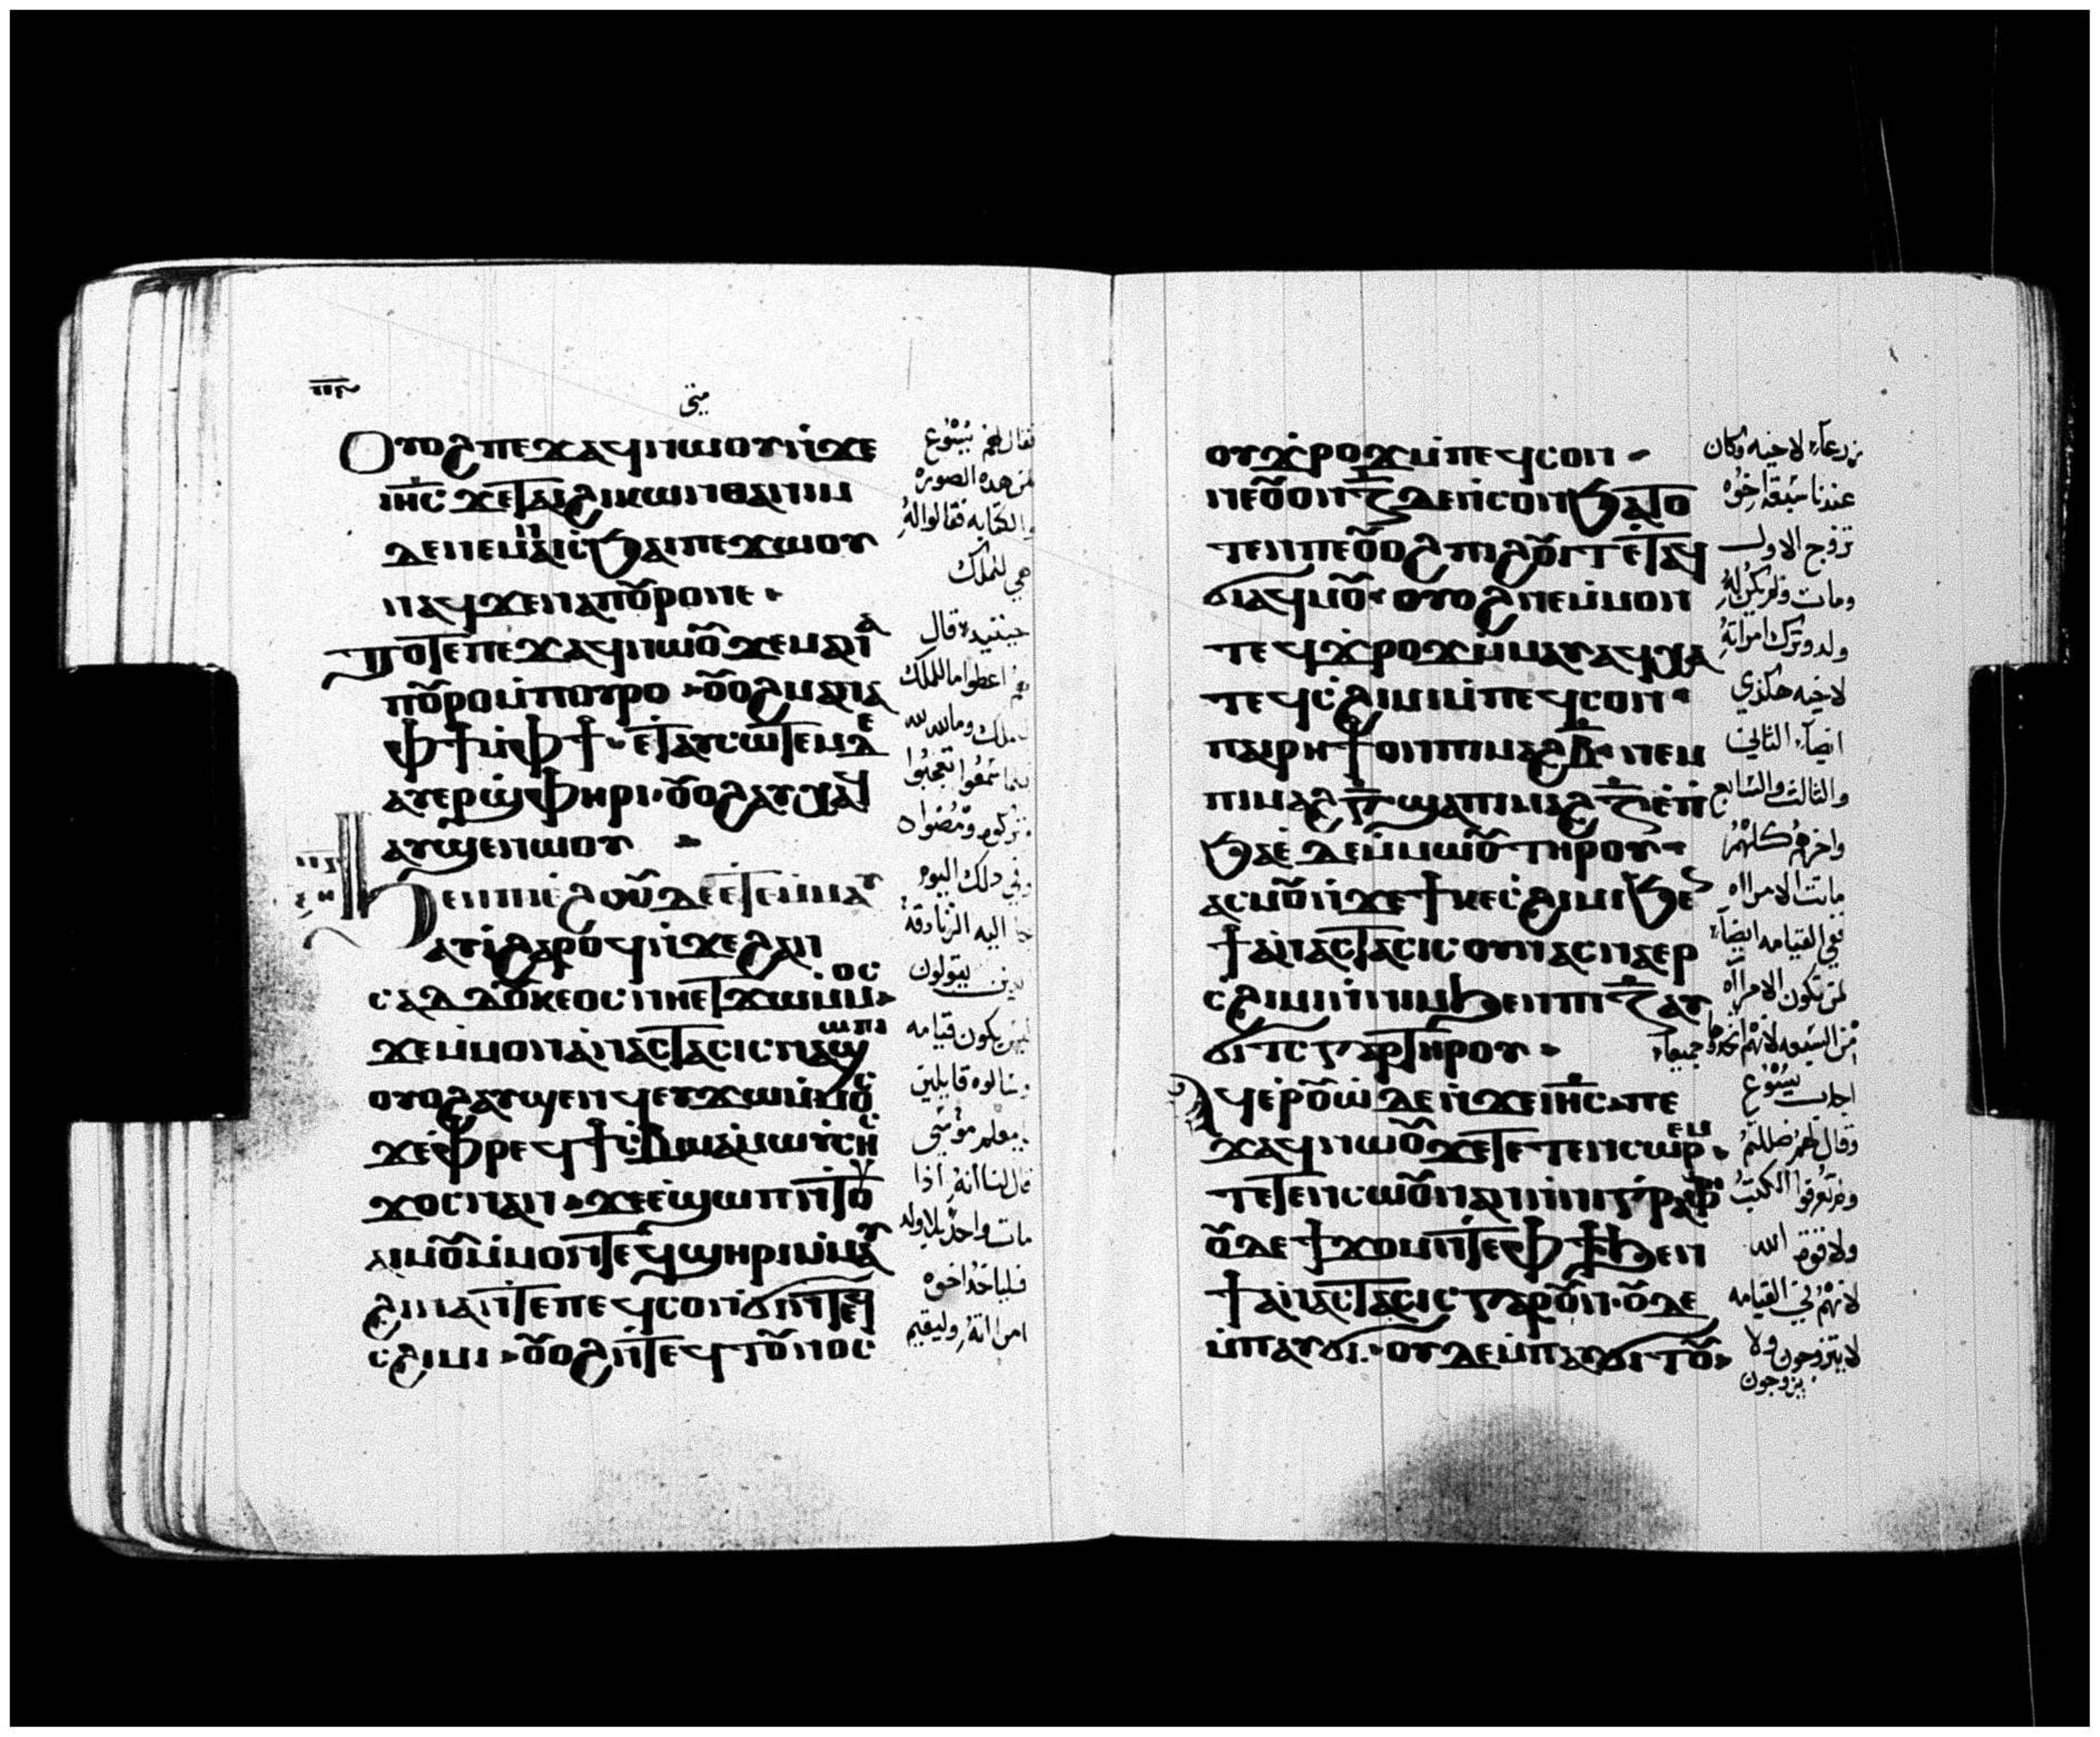 متى
ⲟⲩⲟϩ ⲡⲉϫⲁϥ ⲛⲱⲟⲩ ⲛ̇ϫⲉ
ⲓⲏ̅ⲥ ϫⲉ ⲧⲁⲓϩⲓⲕⲱⲛ ⲑⲁⲛⲓⲙ
ⲛⲁϥ ϫⲉ ⲛⲁⲡⲟ̅ⲣⲟ ⲛⲉ
ⲧⲟⲧⲉ ⲡⲉϫⲁϥ ⲛⲱⲟ̅ ϫⲉ ⲙⲁⲓ
ⲡⲟ̅ⲣⲟ ⲙ̇ⲡⲟⲩⲣⲟ ⲟ̅ⲟϩ ⲛⲁ
ⲫϯ ⲙ̇ⲫϯ ⲉⲧⲁⲩⲥⲱⲧⲉⲙ ⲇⲉ
ⲁⲩⲉⲣϣ̇ⲫⲏⲣⲓ ⲟ̅ⲟϩ ⲁⲩⲭⲁϥ
ⲁⲩϣⲉⲛⲱⲟⲩ
ϧⲉⲛ ⲡⲓⲉ̇ϩⲟⲟ̅ ⲇⲉ ⲉⲧⲉⲙ̇ⲙⲁⲩ
ⲁⲩⲓ̇ ϩⲁⲣⲟϥ ⲛ̇ϫⲉ ϩⲁⲛ
ⲥⲁⲇⲇⲟⲩⲕⲉⲟⲥ ⲛⲏⲉⲧϫⲱ ⲙ̇ⲙⲟⲥ
ϫⲉ ⲙ̇ⲙⲟⲛ ⲁⲛⲁⲥⲧⲁⲥⲓⲥ ⲛⲁϣⲱⲡⲓ
ⲟⲩⲟϩ ⲁⲩϣⲉⲛϥ ⲉⲩϫⲱ ⲙ̇ⲙⲟⲥ
ϫⲉ ⲫⲣⲉϥϯⲥⲃⲱ ⲁ̇ ⲙⲱⲩ̇ⲥⲏⲥ
ϫⲟⲥ ⲛⲁⲛ ϫⲉ ⲉ̇ϣⲱⲡ ⲛ̇ⲧⲉ ⲟⲩ
ⲁⲓ ⲙⲟ̅ ⲙ̇ⲙⲟⲛⲧⲉϥ ϣⲏⲣⲓ ⲙ̇ⲙⲁⲩ
ϩⲓⲛⲁ ⲛ̇ⲧⲉ ⲡⲉϥⲥⲟⲛ ϭⲓ ⲛ̇ⲧⲉϥ
ⲥϩⲓⲙⲓ ⲟ̅ⲟϩ ⲛ̇ⲧⲉϥⲧⲟ̅ⲛⲟⲥ
فقال لهم يسوع
لمن هذه الصوره
والكتابه فقالوا له
هي للملك
حينئيد قال
لهم اعطوا ما للملك
للملك وما لله لله
فلما سمعوا تعجبوا
وتركوه ومضوا
وفي ذلك اليوم
جا اليه الزنادقة
الدين يقولون
ليس يكون قيامه
وسالوه قايلين
يا معلم موسى
قال لنا انه اذا
مات واحد بلا ولد
فلياخد اخوه
امراته وليقيم
ⲟⲩϫ̇ⲣⲟϫ ⲙ̇ⲡⲉϥⲥⲟⲛ
ⲛⲉ ⲟ̅ⲟⲛ ⲍ̅ ⲇⲉ ⲛ̇ⲥⲟⲛ ϧⲁⲧⲟ
ⲧⲉⲛ ⲡⲉ ⲟ̅ⲟϩ ⲡⲓϩⲟ̅ⲓⲧ ⲉⲧⲁϥ
ϭⲓ ⲁϥⲙⲟ̅ ⲟⲩⲟϩ ⲛⲉ ⲙ̇ⲙⲟⲛ
ⲧⲉϥ ϫ̇ⲣⲟϫ ⲙ̇ⲙⲁⲩ ⲁϥⲭⲁ
ⲧⲉϥⲥ̇ϩⲓⲙⲓ ⲙ̇ⲡⲉϥⲥⲟⲛ
ⲡⲁⲓⲣⲏϯ ⲟⲛ ⲡⲓⲙⲁϩ ⲃ̅ ⲛⲉⲙ
ⲡⲓⲙⲁϩ ⲅ̅ ϣⲁ ⲡⲓⲙⲁϩ ⲍ̅ ⲉ̇ⲡ
ϧⲁⲉ̇ ⲇⲉ ⲙ̇ⲙⲱⲟ̅ ⲧⲏⲣⲟⲩ
ⲁⲥⲙⲟ̅ ⲛ̇ϫⲉ ϯⲕⲉⲥ̇ϩⲓⲙⲓ ϧⲉⲛ
ϯⲁⲛⲁⲥⲧⲁⲥⲓⲥ ⲟⲩⲛ ⲁⲥⲛⲁⲉⲣ
ⲥϩⲓⲙⲓ ⲛ̇ⲛⲓⲙ ϧⲉⲛ ⲡⲓ ⲍ̅ ⲁⲩ
ϭⲓⲧⲥ ⲅⲁⲣ ⲧⲏⲣⲟⲩ
ⲁϥⲉⲣⲟ̅ⲱ̇ ⲇⲉ ⲛ̇ϫⲉ ⲓⲏ̅ⲥ ⲡⲉ
ϫⲁϥ ⲛⲱⲟ̅ ϫⲉ ⲧⲉⲧⲉⲛⲥⲱⲣⲉⲙ
ⲧⲉⲧⲉⲛⲥⲱⲟ̅ⲛ ⲁⲛ ⲛ̇ⲛⲓⲅⲣⲁⲫⲏ
ⲟ̅ⲇⲉ ϯϫⲟⲙ ⲛ̇ⲧⲉ ⲫϯ ϧⲉⲛ
ϯⲁⲛⲁⲥⲧⲁⲥⲓⲥ ⲅⲁⲣ ⲟ̅ⲛ ⲟ̅ⲇⲉ
ⲙ̇ⲡⲁⲩϭⲓ ⲟⲩⲇⲉ ⲙ̇ⲡⲁⲩϭⲓⲧⲟ̅
زرعاً لاخيه وكان
عندنا سبعة اخوه
تزوج الاول
ومات ولم يكن له
ولد وترك امراته
لاخيه هكذي
ايضاً الثاني
والثالث والسابع
واخرهم كلهم
ماتت الامراه
ففي القيامه ايضاً
لمن تكون الامراه
من السبعه لانهم اتخدوها جميعاً
اجاب يسوع
وقال لهم ضللتم
ولم تعرفوا الكتب
ولا قوة الله
لانهم في القيامه
لا يتزوجون ولا
يزوجون